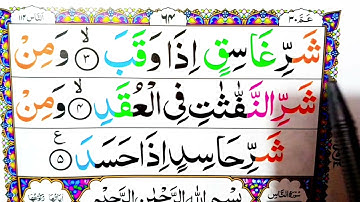 عَمَّ ٣٠ ٦٤ النَّاس ١١٤
شَرِّ غَاسِقٍ اِذَا وَقَبَ ۙ﴿۳﴾ وَمِنْ
شَرِّ النَّفّٰثٰتِ فِی الْعُقَدِ ۙ﴿۴﴾ وَمِنْ
شَرِّ حَاسِدٍ اِذَا حَسَدَ ﴿۵﴾ ع
بِسْمِ اللّٰهِ الرَّحْمٰنِ الرَّحِیْمِ